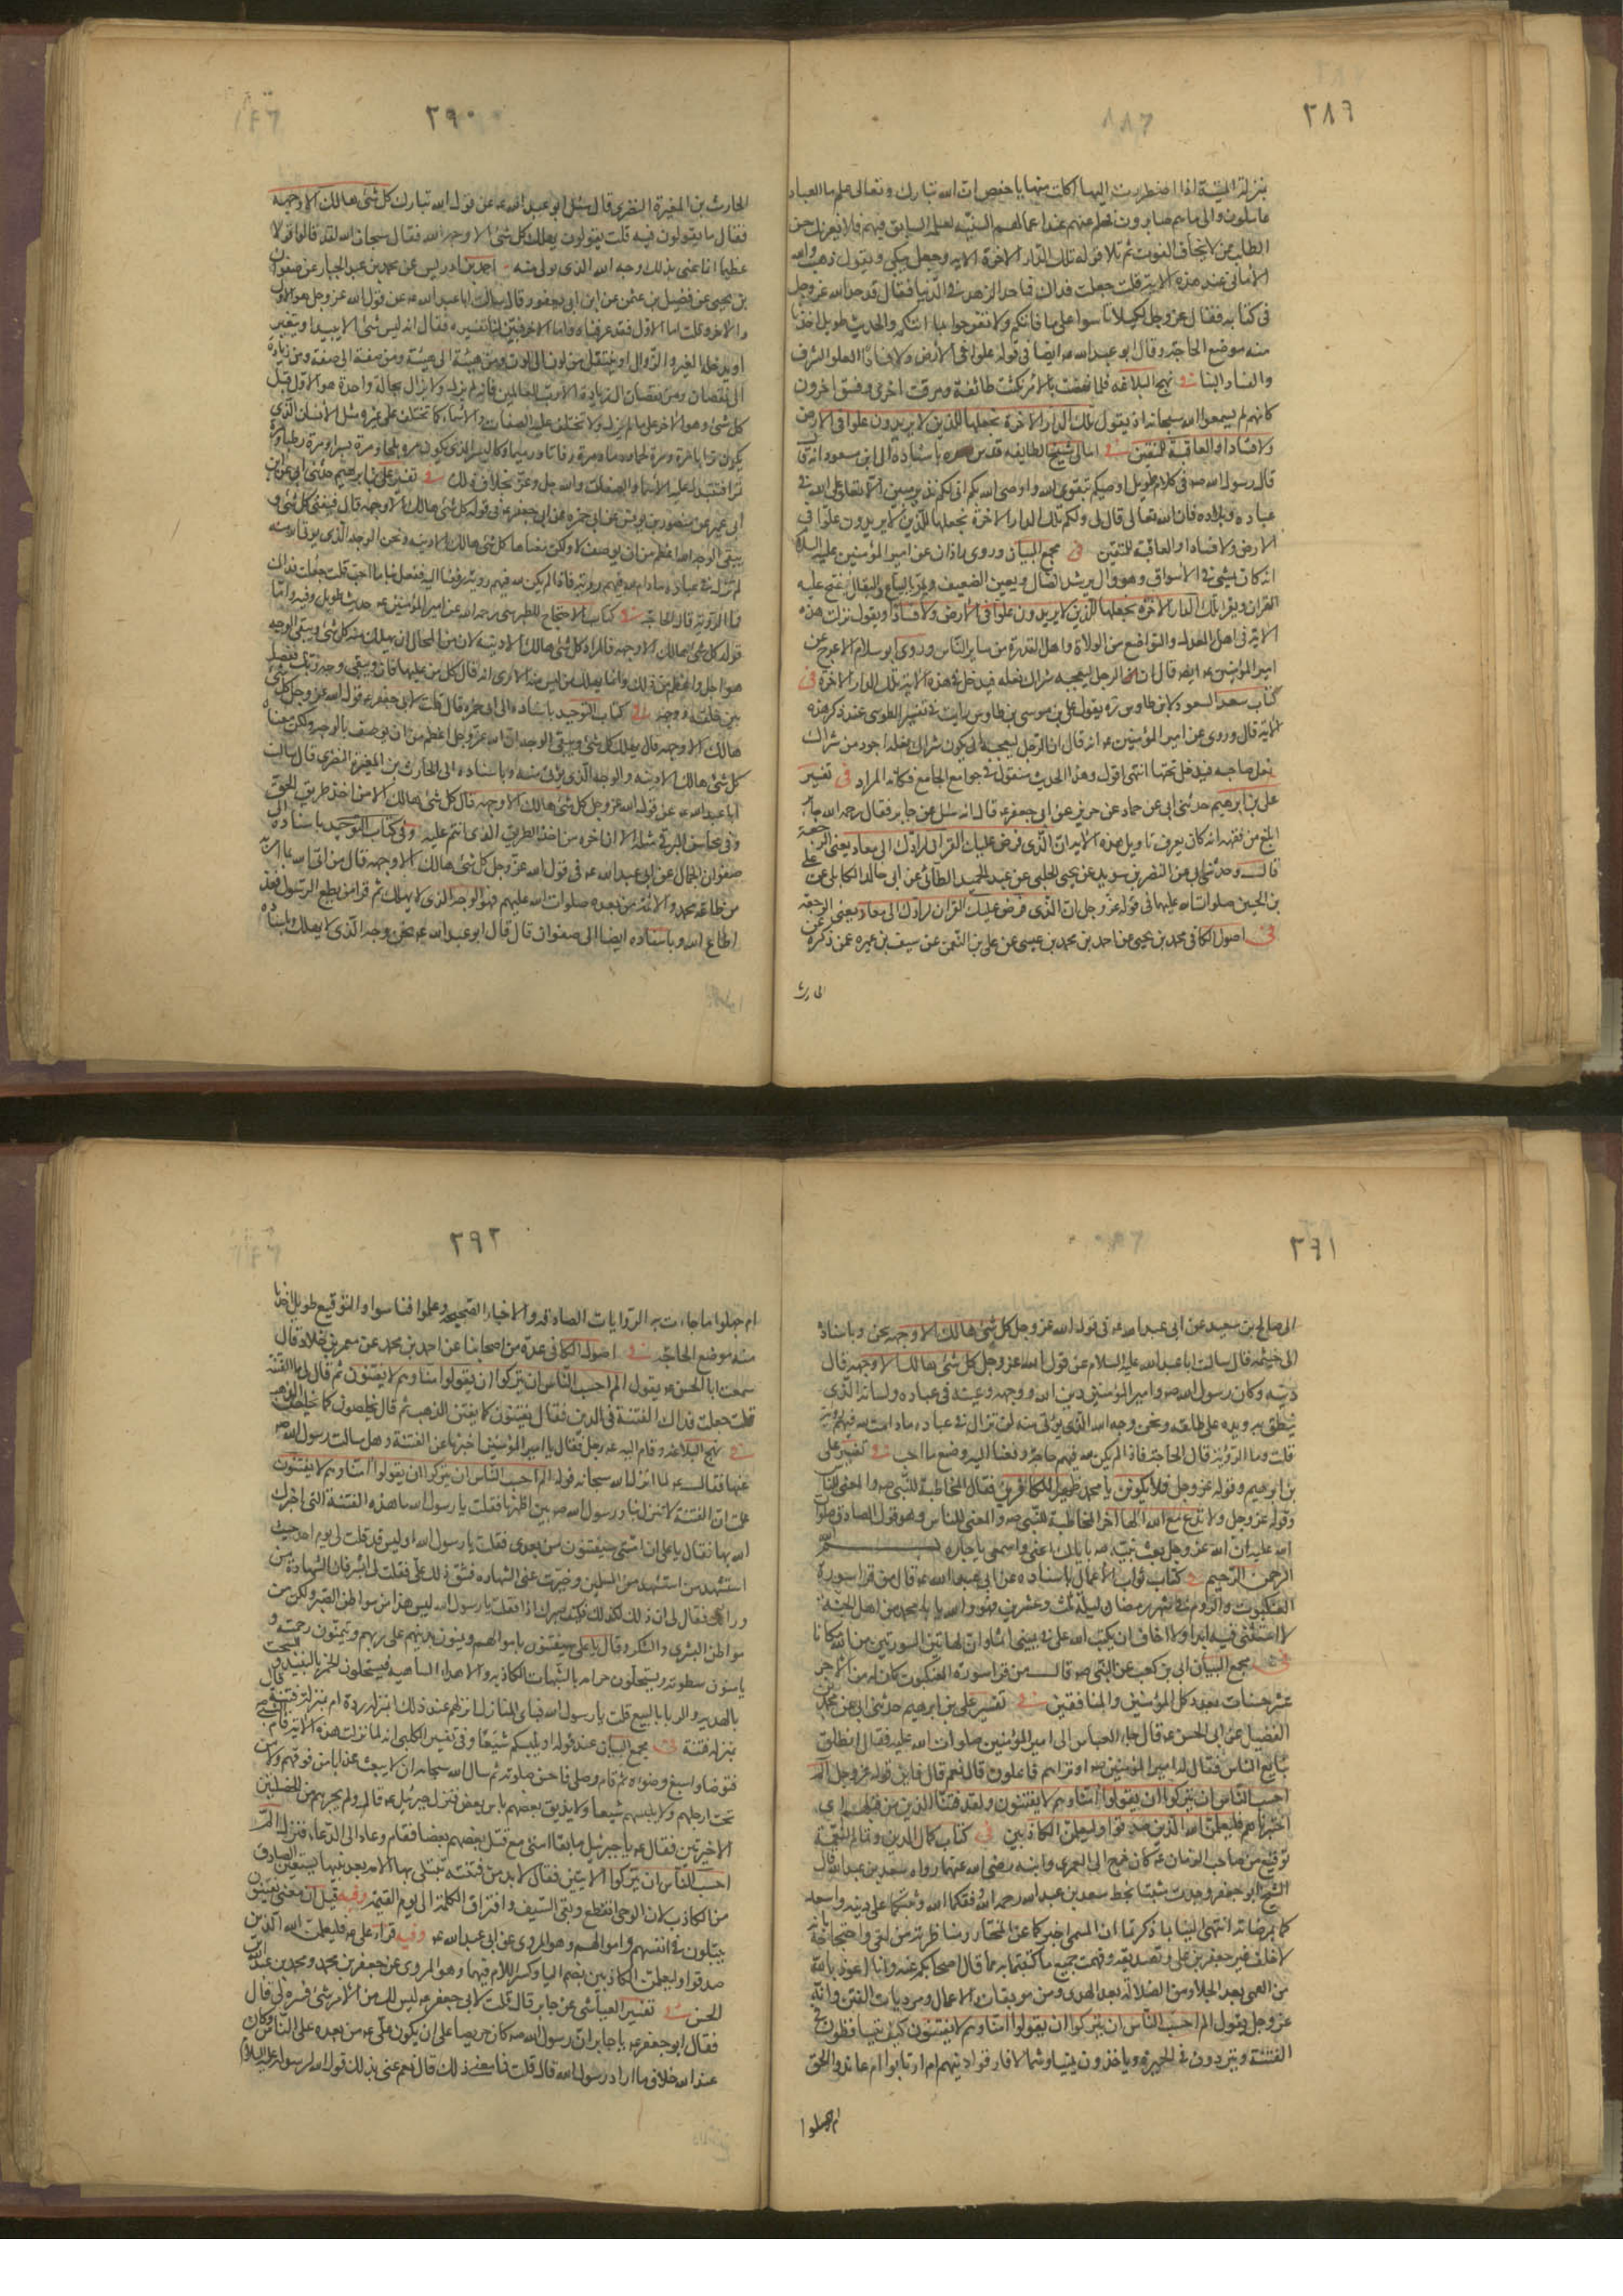 ٢٨٩
بمنزلة الميتة اذا اضطررت اليها اكلت منها يا حفص ان الله تبارك وتعالى علم ما العباد
عاملون والى ما هم صايرون فحلم عنهم عند اعمالهم السيئة لعلمه السابق فيهم فلا يغرنك حسن
الطلب ممن لا يخاف الفوت ثم تلا قوله تلك الدار الاخرة الاية وجعل يبكى ويقول ذهبت والله
الامانى عند هذه الاية قلت جعلت فداك فما حد الزهد فى الدنيا فقال قد حد الله عز وجل
فى كتابه فقال عز وجل لكيلا تاسوا على ما فاتكم ولا تفرحوا بما اتيكم والحديث طويل اخذنا
منه موضع الحاجة وقال ابو عبد الله ع ايضا فى قوله علوا فى الارض ولا فسادا العلو الشرف
والفساد البنا فى نهج البلاغه فلما نهضت بالامر نكثت طائفة ومرقت اخرى وفسق اخرون
كانهم لم يسمعوا الله سبحانه اذ يقول تلك الدار الاخرة نجعلها للذين لا يريدون علوا فى الارض
ولا فسادا والعاقبة للمتقين فى امالى شيخ الطايفه قدس سره باسناده الى ابن مسعود انه قال
قال رسول الله ص فى كلام طويل اوصيكم بتقوى الله واوصى الله بكم انى لكم نذير مبين الا تعلوا على الله فى
عباده وبلاده فان الله تعالى قال لى ولكم تلك الدار الاخرة نجعلها للذين لا يريدون علوا فى
الارض ولا فسادا والعاقبة للمتقين فى مجمع البيان وروى زاذان عن امير المؤمنين عليه السلام
انه كان يمشى فى الاسواق وهو وال يرشد الضال ويعين الضعيف ويمر بالبياع والبقال فيفتح عليه
القران ويقرا تلك الدار الاخرة نجعلها للذين لا يريدون علوا فى الارض ولا فسادا ويقول نزلت هذه
الاية فى اهل العدل والتواضع من الولاة واهل القدرة من ساير الناس وروى ابو سلام الاعرج عن
امير المؤمنين ع ايضا قال ان الرجل ليعجبه شراك نعله فيدخل فى هذه الاية تلك الدار الاخرة فى
كتاب سعد السعود لابن طاوس ره يقول على بن موسى بن طاوس رايت فى تفسير الطوسى عند ذكر هذه
الاية قال وروى عن امير المؤمنين ع انه قال ان الرجل ليعجبه ان يكون شراك نعله اجود من شراك
نعل صاحبه فيدخل تحتها انتهى اقول وهذا الحديث منقول فى جوامع الجامع فكانه المراد فى تفسير
على بن ابرهيم حدثنى ابى عن حماد عن حريز عن ابى جعفر ع قال انه سئل عن جابر فقال رحم الله جابر
بلغ من فقهه انه كان يعرف تاويل هذه الاية ان الذى فرض عليك القران لرادك الى معاد يعنى الرجعة
قال وحدثنى ابى عن النضر بن سويد عن يحيى الحلبى عن عبد الحميد الطائى عن ابى خالد الكابلى عن على
بن الحسين صلوات الله عليهما فى قوله عز وجل ان الذى فرض عليك القران لرادك الى معاد يعنى الرجعة
فى اصول الكافى محمد بن يحيى عن احمد بن محمد بن عيسى عن على بن النعمن عن سيف بن عميره عمن ذكره عن
الحارث
٢٩٠
الحارث بن المغيرة النضرى قال سئل ابو عبد الله ع عن قول الله تبارك كل شئ هالك الا وجهه
فقال ما يقولون فيه قلت يقولون يهلك كل شئ الا وجه الله فقال سبحان الله لقد قالوا قولا
عظيما انما عنى بذلك وجه الله الذى يؤتى منه احمد بن ادريس عن محمد بن عبد الجبار عن صفوان
بن يحيى عن فضيل بن عثمن عن ابن ابى يعفور قال سالت ابا عبد الله ع عن قول الله عز وجل هو الاول
والاخر وقلت اما الاول فقد عرفناه واما الاخر فبين لنا تفسيره فقال انه ليس شئ الا يبيد او يتغير
او يدخله الغير والزوال او ينتقل من لون الى لون ومن هيئة الى هيئة ومن صفة الى صفة ومن زيادة
الى نقصان ومن نقصان الى زيادة الا رب العالمين فانه لم يزل ولا يزال بحالة واحدة هو الاول قبل
كل شئ وهو الاخر على ما لم يزل ولا تختلف عليه الصفات والاسماء كما تختلف على غيره مثل الانسان الذى
يكون ترابا مرة ومرة لحما ودما ومرة رفاتا ورميما وكالبسر الذى يكون مرة بلحا ومرة بسرا ومرة رطبا ومرة
تمرا فتتبدل عليه الاسماء والصفات والله جل وعز بخلاف ذلك فى تفسير على بن ابرهيم حدثنى ابى عن ابن
ابى عمير عن منصور بن يونس عن ابى حمزه عن ابى جعفر ع فى قوله كل شئ هالك الا وجهه قال فيفنى كل شئ و
يبقى الوجه الله اعظم من ان يوصف لا ولكن معناها كل شئ هالك الا دينه ونحن الوجه الذى يؤتى الله منه
لم نزل فى عباده ما دام الله له فيهم روية فاذا لم يكن له فيهم روية رفعنا اليه ففعل بنا ما احب قلت جعلت فداك
فما الروية قال الحاجة فى كتاب الاحتجاج للطبرسى رحمه الله عن امير المؤمنين ع حديث طويل وفيه واما
قوله كل شئ هالك الا وجهه فالمراد كل شئ هالك الا دينه لان من المحال ان يهلك منه كل شئ ويبقى الوجه
هو اجل واعظم من ذلك وانما يهلك من ليس منه الا ترى انه قال كل من عليها فان ويبقى وجه ربك ففصل
بين خلقه ووجهه فى كتاب التوحيد باسناده الى ابى حمزه قال قلت لابى جعفر ع قول الله عز وجل كل شئ
هالك الا وجهه قال يهلك كل شئ ويبقى الوجه ان الله عز وجل اعظم من ان يوصف بالوجه ولكن معناه
كل شئ هالك الا دينه والوجه الذى يؤتى منه وباسناده الى الحارث بن المغيرة النضرى قال سالت
ابا عبد الله ع عن قول الله عز وجل كل شئ هالك الا وجهه قال كل شئ هالك الا من اخذ طريق الحق
وفى محاسن البرقى مثله الا ان اخره من اخذ الطريق الذى انتم عليه وفى كتاب التوحيد باسناده الى
صفوان الجمال عن ابى عبد الله ع فى قول الله عز وجل كل شئ هالك الا وجهه قال من اتى الله بما امر به
من طاعة محمد والائمة من بعده صلوات الله عليهم فهو الوجه الذى لا يهلك ثم قرا من يطع الرسول فقد
اطاع الله وباسناده ايضا الى صفوان قال قال ابو عبد الله ع نحن وجه الله الذى لا يهلك وباسناده
٢٩١
الى صالح بن سعيد عن ابى عبد الله ع فى قول الله عز وجل كل شئ هالك الا وجهه نحن وباسناده
الى خيثمه قال سالت ابا عبد الله عليه السلام عن قول الله عز وجل كل شئ هالك الا وجهه قال
دينه وكان رسول الله ص وامير المؤمنين دين الله ووجهه وعينه فى عباده ولسانه الذى
ينطق به ويده على خلقه ونحن وجه الله الذى يؤتى منه لن نزال فى عباده ما دامت لله فيهم روية
قلت وما الروية قال الحاجة فاذا لم يكن لله فيهم حاجة رفعنا اليه وصنع ما احب فى تفسير على
بن ابرهيم وقوله عز وجل فلا تكونن يا محمد ظهيرا للكافرين فقال المخاطبة للنبى ص والمعنى للناس
وقوله عز وجل ولا تدع مع الله الها اخر المخاطبة للنبى ص والمعنى للناس وهو قول الصادق صلوات
الله عليه ان الله عز وجل بعث نبيه ص باياك اعنى واسمعى يا جاره بسم الله
الرحمن الرحيم فى كتاب ثواب الاعمال باسناده عن ابى عبد الله ع قال من قرا سورة
العنكبوت والروم فى شهر رمضان ليلة ثلث وعشرين فهو والله يا با محمد من اهل الجنة
لا استثنى فيه ابدا ولا اخاف ان يكتب الله على فى يمينى اثما وان لهاتين السورتين من الله مكانا
فى مجمع البيان ابى بن كعب عن النبى ص قال من قرا سورة العنكبوت كان له من الاجر
عشر حسنات بعدد كل المؤمنين والمنافقين فى تفسير على بن ابرهيم حدثنى ابى عن محمد بن
الفضيل عن ابى الحسن ع قال جاء العباس الى امير المؤمنين صلوات الله عليه فقال انطلق
نبايع الناس فقال له امير المؤمنين ع اوتراهم فاعلون قال نعم قال فاين قوله عز وجل الم
احسب الناس ان يتركوا ان يقولوا امنا وهم لا يفتنون ولقد فتنا الذين من قبلهم اى
اختبرناهم فليعلمن الله الذين صدقوا وليعلمن الكاذبين فى كتاب كمال الدين وتمام النعمة
توقيع من صاحب الزمان ع كان خرج الى العمرى وابنه رضى الله عنهما رواه سعد بن عبد الله قال
الشيخ ابو جعفر وجدت مثبتا بخط سعد بن عبد الله رحمه الله وفقكما الله وثبتكما على دينه واسعد
كما بمرضاته انتهى الينا ما ذكرتما ان الميثمى اخبركما عن المختار ومناظرته من لقى واحتجاجه بانه
لا خلف غير جعفر بن على وتصديقه وفهمت جميع ما كتبتما به مما قال اصحابكما عنه وانا اعوذ بالله
من العمى بعد الجلاء ومن الضلالة بعد الهدى ومن موبقات الاعمال ومرديات الفتن وانه
عز وجل يقول الم احسب الناس ان يتركوا ان يقولوا امنا وهم لا يفتنون كيف يتساقطون فى
الفتنة ويترددون فى الحيرة وياخذون يمينا وشمالا فارقوا دينهم ام ارتابوا ام عاندوا الحق
ام جهلوا
٢٩٢
ام جهلوا ما جاءت به الروايات الصادقه والاخبار الصحيحة وعلموا فتناسوا والتوقيع طويل اخذنا
منه موضع الحاجة فى اصول الكافى عدة من اصحابنا عن احمد بن محمد عن معمر بن خلاد قال
سمعت ابا الحسن ع يقول الم احسب الناس ان يتركوا ان يقولوا امنا وهم لا يفتنون ثم قال لى ما الفتنة
قلت جعلت فداك الفتنة فى الدين فقال يفتنون كما يفتن الذهب ثم قال يخلصون كما يخلص الذهب
فى نهج البلاغه وقام اليه ع رجل فقال يا امير المؤمنين اخبرنا عن الفتنة وهل سالت رسول الله ص
عنها فقال ع لما انزل الله سبحانه قوله الم احسب الناس ان يتركوا ان يقولوا امنا وهم لا يفتنون
علمت ان الفتنة لا تنزل بنا ورسول الله ص بين اظهرنا فقلت يا رسول الله ما هذه الفتنة التى اخبرك
الله بها فقال يا على ان امتى سيفتنون من بعدى فقلت يا رسول الله اوليس قد قلت لى يوم احد حيث
استشهد من استشهد من المسلمين وحيزت عنى الشهادة فشق ذلك على فقلت لى ابشر فان الشهادة من
ورائك فقال لى ان ذلك لكذلك فكيف صبرك اذا فقلت يا رسول الله ليس هذا من مواطن الصبر ولكن من
مواطن البشرى والشكر وقال يا على سيفتنون باموالهم ويمنون بدينهم على ربهم ويتمنون رحمته و
يامنون سطوته ويستحلون حرامه بالشبهات الكاذبة والاهواء الساهية فيستحلون الخمر بالنبيذ والسحت
بالهدية والربا بالبيع قلت يا رسول الله فباى المنازل انزلهم عند ذلك ابمنزلة ردة ام بمنزلة فتنة قال
بمنزلة فتنة فى مجمع البيان عند قوله او يلبسكم شيعا وفى تفسير الكلبى انه لما نزلت هذه الاية قام النبى ص
فتوضا واسبغ وضوءه ثم قام وصلى فاحسن صلوته ثم سال الله سبحانه ان لا يبعث عذابا من فوقهم ولا من
تحت ارجلهم ولا يلبسهم شيعا ولا يذيق بعضهم باس بعض فنزل جبرئيل ع قال ولم يجرهم من الخصلتين
الاخيرتين فقال ع يا جبرئيل ما بقاء امتى مع قتل بعضهم بعضا فقام وعاد الى الدعاء فنزل الم
احسب الناس ان يتركوا الايتين فقال لابد من فتنة تبتلى بها الامة بعد نبيها ليتعين الصادق
من الكاذب لان الوحى انقطع وبقى السيف وافتراق الكلمة الى يوم القيمة وفيه قيل ان معنى يفتنون
يبتلون فى انفسهم واموالهم وهو المروى عن ابى عبد الله ع وفيه قراءة على ع فليعلمن الله الذين
صدقوا وليعلمن الكاذبين بضم الياء وكسر اللام فيهما وهو المروى عن جعفر بن محمد ومحمد بن عبد الله بن
الحسن فى تفسير العياشى عن جابر قال قلت لابى جعفر ع ليس لك من الامر شئ فسره لى قال
فقال ابو جعفر ع يا جابر ان رسول الله ص كان حريصا على ان يكون على ع من بعده على الناس وكان
عند الله خلاف ما اراد رسول الله قال قلت فما معنى ذلك قال نعم عنى بذلك قول الله لرسوله عليه السلام